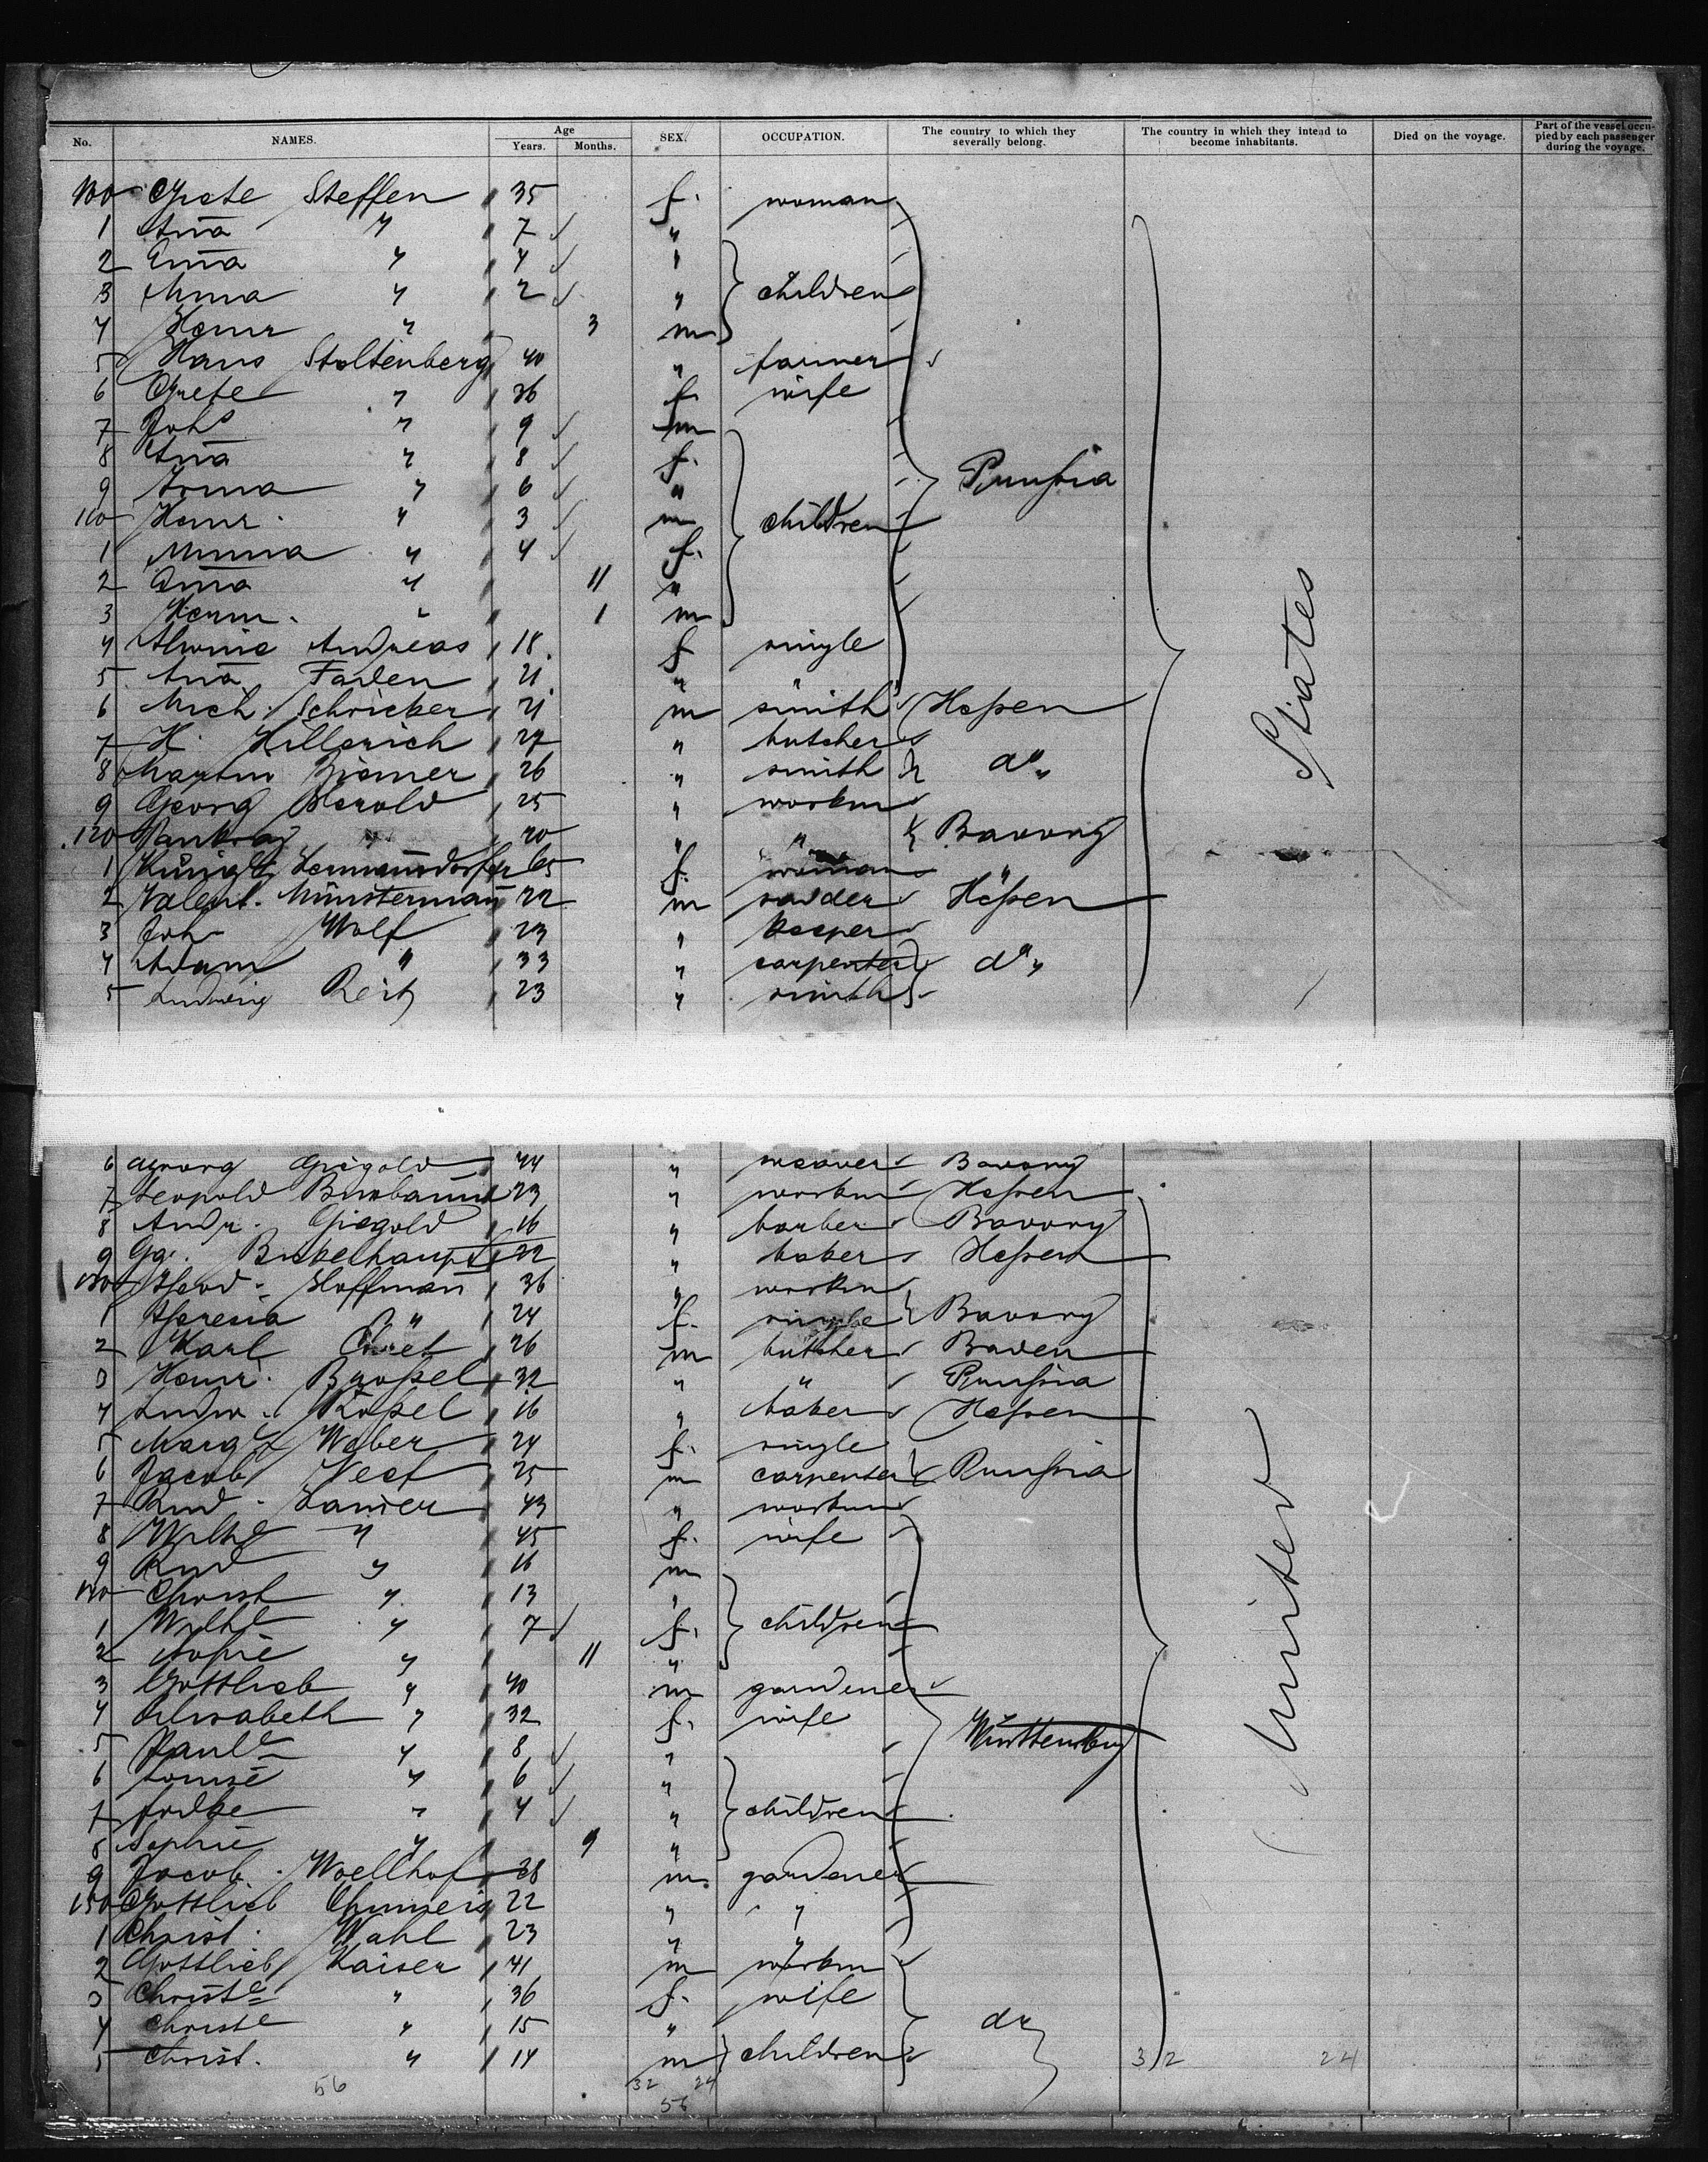 No. NAMES. Age Years. Months. SEX. OCCUPATION. The country to which they severally belong. The country in which they intend to become inhabitants. Died on the voyage. Part of the vessel occupied by each passenger during the voyage.
100 Grete Steffen 35 f. woman
1 Ana̅ " 7 "
2 Em̅a " 4 "
3 Minna " 2 " children
4 Heinr " 3 m
5 Hans Stoltenberg 40 " farmer
6 Grete " 36 f. wife
7 Johs " 9 m
8 An̅a " 8 f.
9 Irma " 6 " Prussia
110 Heinr. " 3 m children
1 Minna " 4 f.
2 Em̅a " 11 "
3 Herm. " 1 m
4 Alwine Andreas 18. f single
5 An̅a 21 " "
6 Mich. Schricker 21 m smith Hessen
7 H. Hillerich 27 " butcher
8 Martin 26 " smith do "
9 Georg Herold 25 " workm
120 Pankraz " 20 " " Bavory
1 65 f. woman
2 Valent. Münsterman̅ 22 m sadder Hessen
3 Joh Wolf 23 "
4 Adam " 33 " carpenter do "
5 Ludwig Reitz 23 " smith
States
6 Georg Giegold 44 " weaver Bavory
7 Leopold 23 " workm Hessen
8 Andr. Giegold 16 " barber Bavory
9 Gg. Bickelhaupt 22 " baker Hessen
130 Hoffman̅ 36 " workm
1 Theresia " 24 f. single Bavory
2 Karl 26 m butcher Baden
3 Heinr. 32 " " Prussia
4 Ludw. 16 " baker Hessen
5 Weber 24 f. single
6 Jacob Neef 25 m carpenter Prussia
7 43 " workm
8 Wilhe " 45 f. wife
9 " 16 m
140 Christ " 13 "
1 Wilhe " 7 f. children
2 Sophie " 11 "
3 Gottlieb " 40 m gardener
4 Elisabeth " 32 f. wife
Württemberg
5 Paule " 8 "
6 Louise " 6 "
7 " 4 " children
8 Sophie " 9 "
9 Jacob 28 m. gardener
150 Gottlieb 22 " "
1 Christ. Wahl 23 " "
2 Gottlieb Kaiser 41 m workm
3 Christe " 36 f. wife
4 Christe " 15 " do
5 Christ. " 14 m children
United
56 32 24 32 24
56